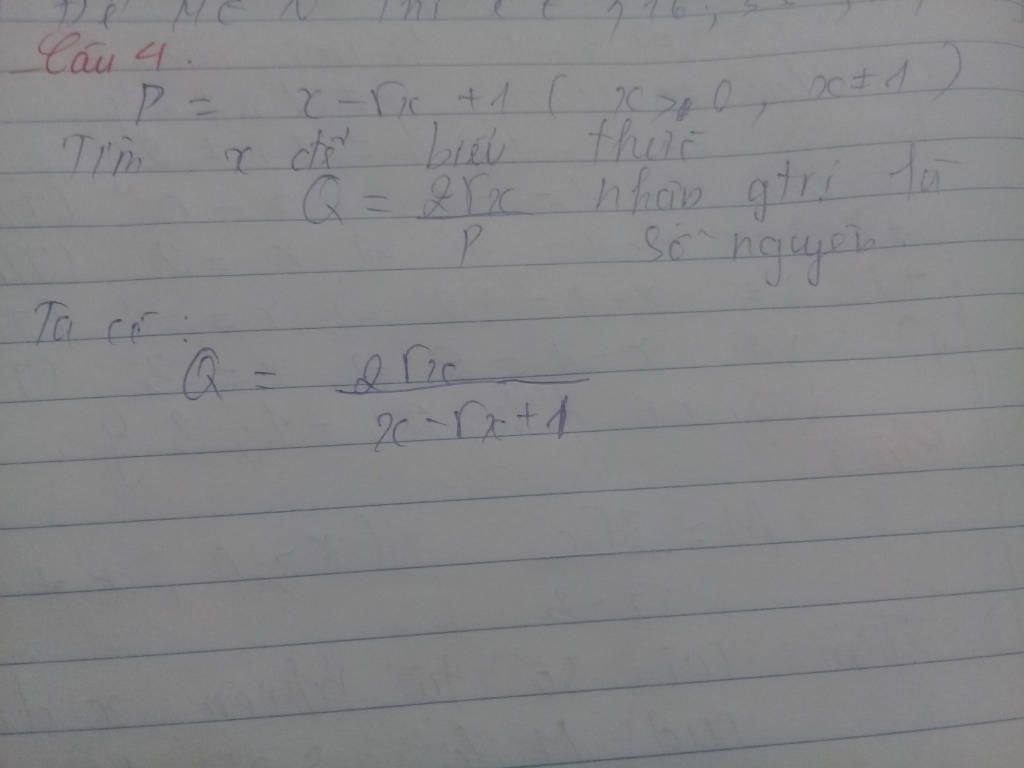 Câu 4.
P = x - √x + 1 ( x > 0, x ≠ 1 )
Tìm x để biểu thức
Q = 2√x / P nhận gtrị là
số nguyên.
Ta có:
Q = 2√x / x - √x + 1